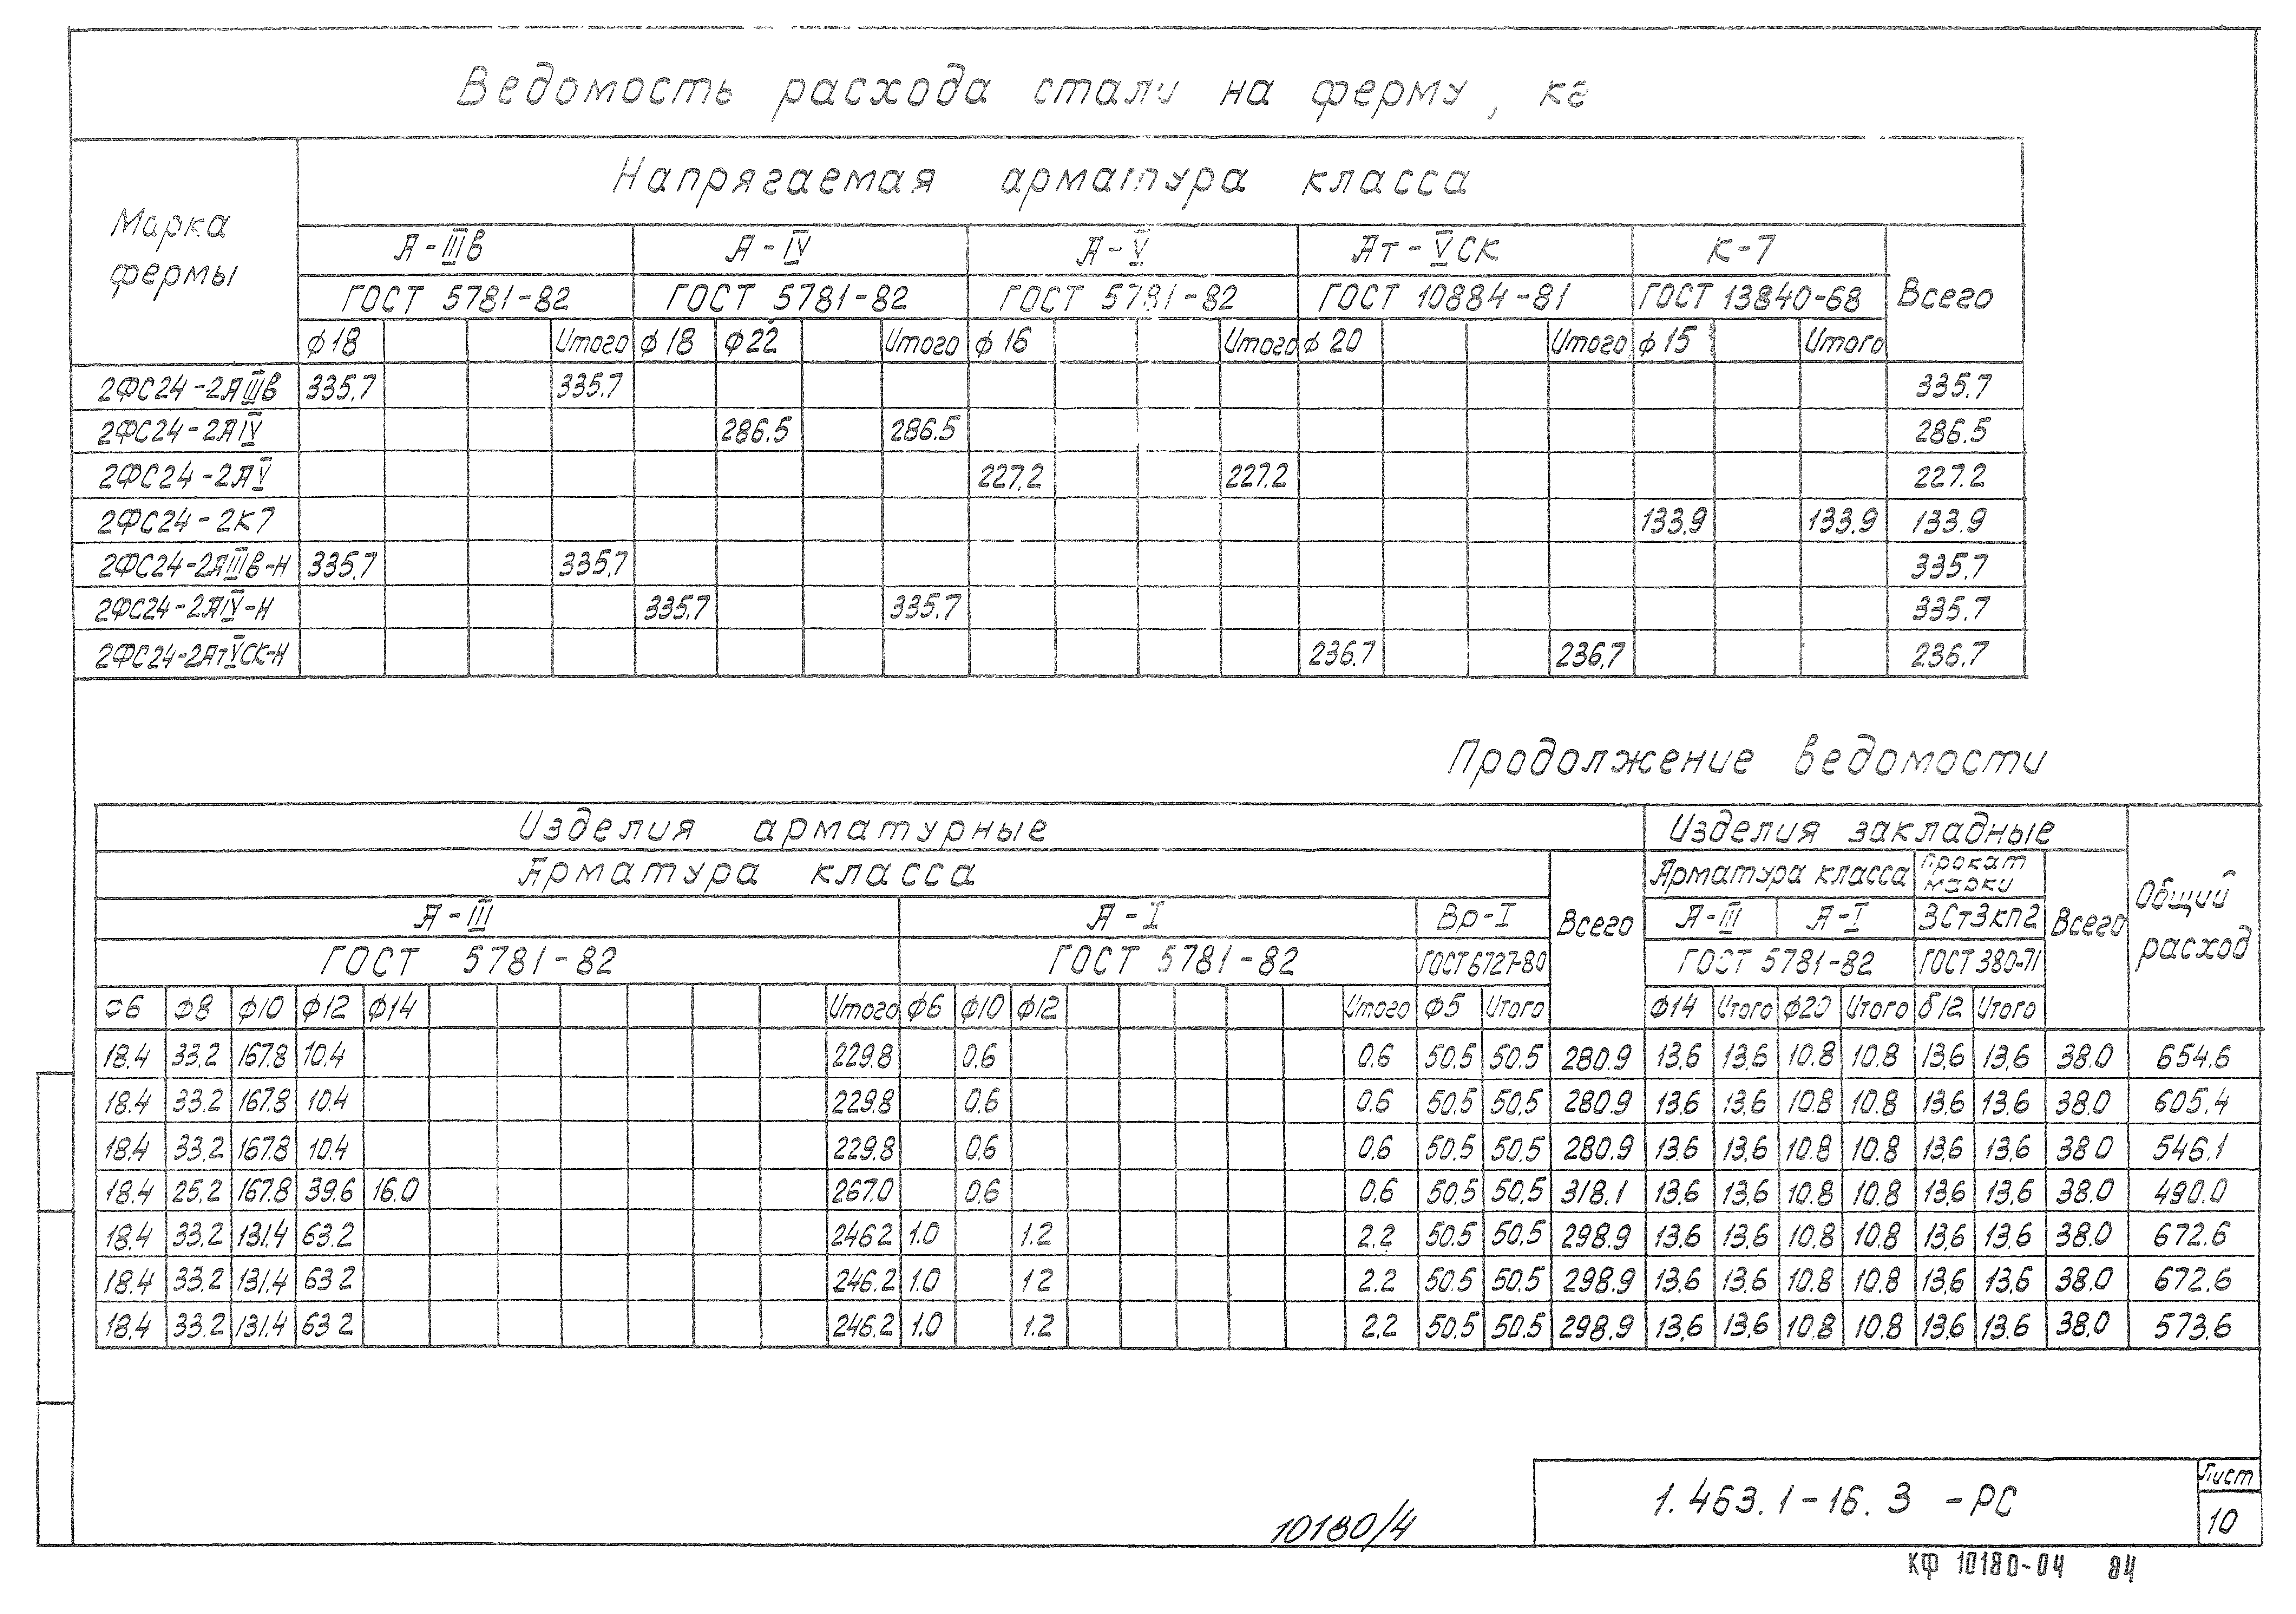 Ведомость расхода стали на ферму, кг
Марка фермы
Напрягаемая арматура класса
А-IIIв А-IV А-V Ат-VСК К-7 Всего
ГОСТ 5781-82 ГОСТ 5781-82 ГОСТ 5781-82 ГОСТ 10884-81 ГОСТ 13840-68
ф18 Итого ф18 ф22 Итого ф16 Итого ф20 Итого ф15 Итого
2ФС24-2АIIIв 335.7 335.7 335.7
2ФС24-2АIV 286.5 286.5 286.5
2ФС24-2АV 227.2 227.2 227.2
2ФС24-2К7 133.9 133.9 133.9
2ФС24-2АIIIв-Н 335.7 335.7 335.7
2ФС24-2АIV-Н 335.7 335.7 335.7
2ФС24-2АтVСК-Н 236.7 236.7 236.7
Продолжение ведомости
Изделия арматурные Изделия закладные Общий расход
Арматура класса Всего Арматура класса Прокат марки Всего
А-III А-I Вр-I А-III А-I ВСт3кп2
ГОСТ 5781-82 ГОСТ 5781-82 ГОСТ 6727-80 ГОСТ 5781-82 ГОСТ 380-71
ф6 ф8 ф10 ф12 ф14 Итого ф6 ф10 ф12 Итого ф5 Итого ф14 Итого ф20 Итого δ12 Итого
18.4 33.2 167.8 10.4 229.8 0.6 0.6 50.5 50.5 280.9 13.6 13.6 10.8 10.8 13.6 13.6 38.0 654.6
18.4 33.2 167.8 10.4 229.8 0.6 0.6 50.5 50.5 280.9 13.6 13.6 10.8 10.8 13.6 13.6 38.0 605.4
18.4 33.2 167.8 10.4 229.8 0.6 0.6 50.5 50.5 280.9 13.6 13.6 10.8 10.8 13.6 13.6 38.0 546.1
18.4 25.2 167.8 39.6 16.0 267.0 0.6 0.6 50.5 50.5 318.1 13.6 13.6 10.8 10.8 13.6 13.6 38.0 490.0
18.4 33.2 131.4 63.2 246.2 1.0 1.2 2.2 50.5 50.5 298.9 13.6 13.6 10.8 10.8 13.6 13.6 38.0 672.6
18.4 33.2 131.4 63.2 246.2 1.0 1.2 2.2 50.5 50.5 298.9 13.6 13.6 10.8 10.8 13.6 13.6 38.0 672.6
18.4 33.2 131.4 63.2 246.2 1.0 1.2 2.2 50.5 50.5 298.9 13.6 13.6 10.8 10.8 13.6 13.6 38.0 573.6
1.463.1-16.3 -РС
Лист
10
10180/4
КФ 10180-04 84